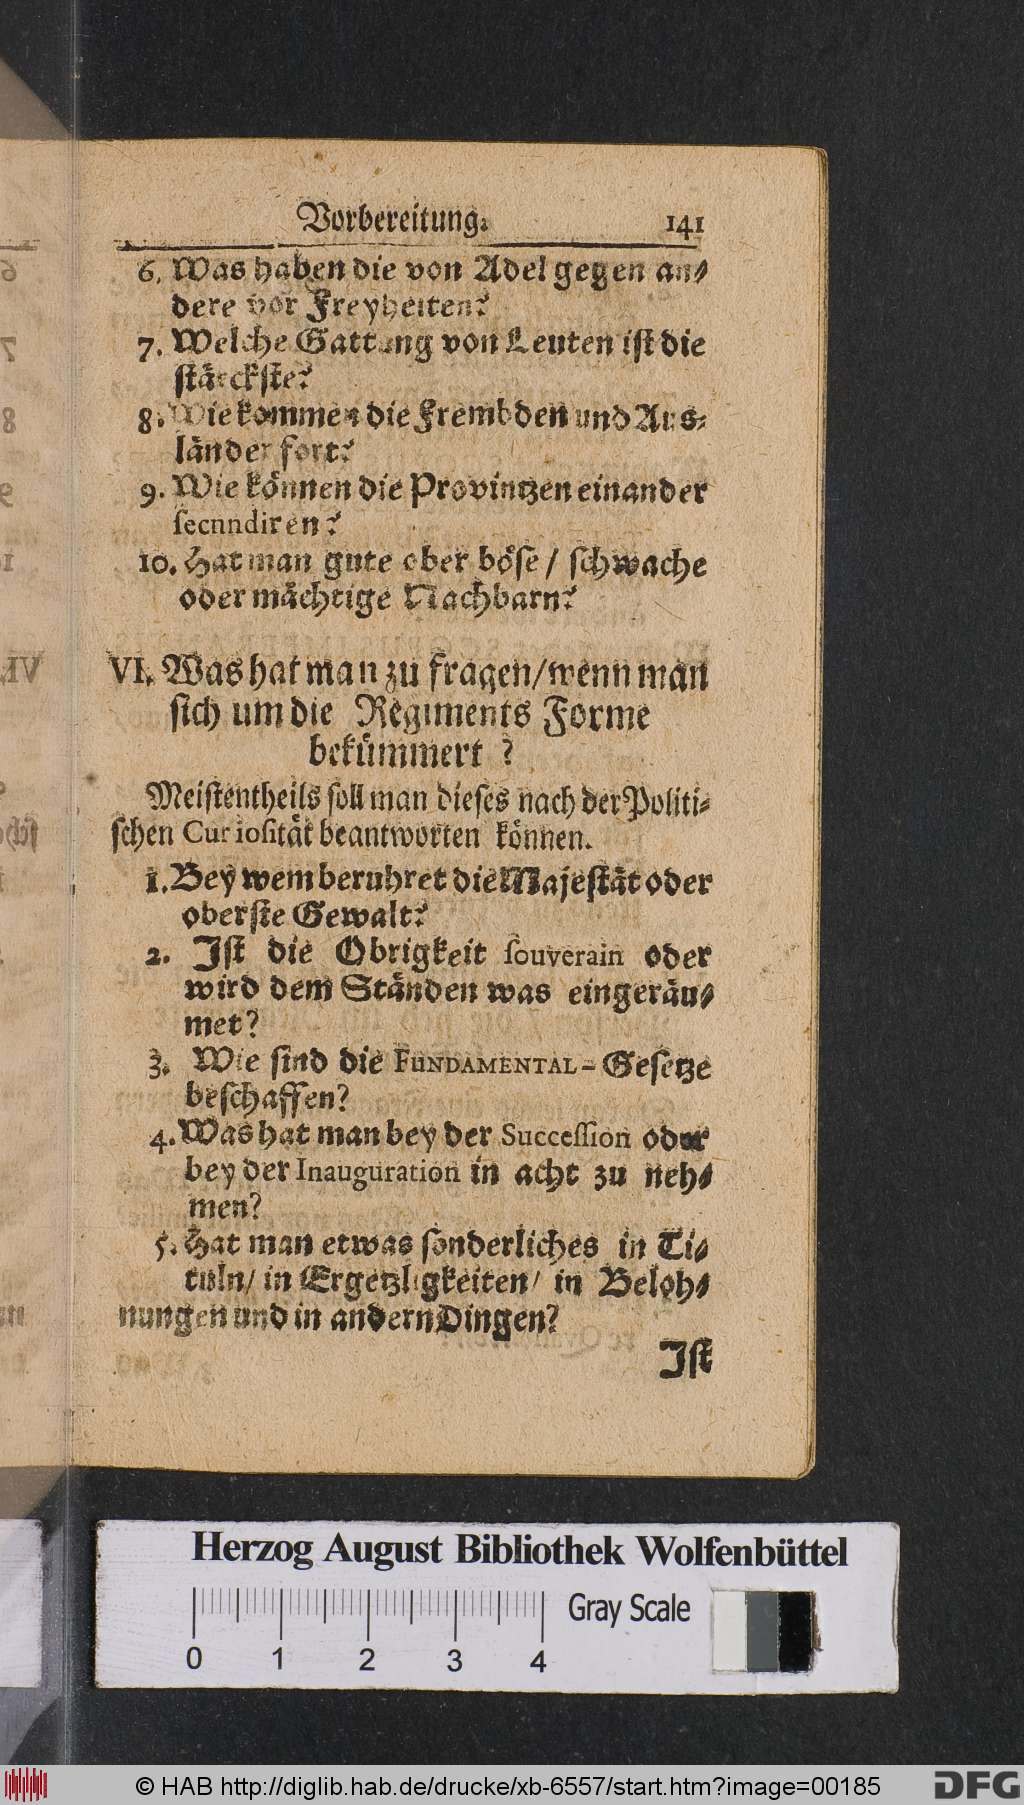 Vorbereitung. 141
6. Was haben die von Adel gegen an⸗
dere vor Freyheiten?
7. Welche Gattung von Leuten ist die
stärckste?
8. Wie kommen die Frembden und Aus⸗
länder fort?
9. Wie können die Provintzen einander
secnndiren?
10. Hat man gute ober böse / schwache
oder mächtige Nachbarn?
VI. Was hat man zu fragen / wenn man
sich um die Regiments Forme
bekümmert ?
Meistentheils soll man dieses nach der Politi⸗
schen Curiosität beantworten können.
1. Bey wem beruhret die Majestät oder
oberste Gewalt?
2. Ist die Obrigkeit souverain oder
wird dem Ständen was eingeräu⸗
met?
3. Wie sind die FUNDAMENTAL-Gesetze
beschaffen?
4. Was hat man bey der Succession oder
bey der Inauguration in acht zu neh⸗
men?
5. Hat man etwas sonderliches in Ti⸗
tuln / in Ergetzligkeiten / in Beloh⸗
nungen und in andern Dingen?
Ist
Herzog August Bibliothek Wolfenbüttel
Gray Scale
0 1 2 3 4
© HAB http://diglib.hab.de/drucke/xb-6557/start.htm?image=00185 DFG